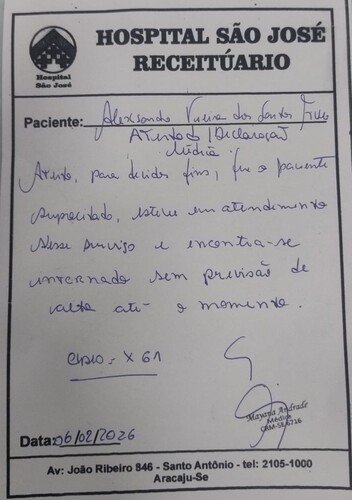 Hospital
São José
HOSPITAL SÃO JOSÉ
RECEITUÁRIO
Paciente: Alexsandro Vieira dos Santos
Atestado/Declaração
Médica
Atesto, para devidos fins, que o paciente
supracitado, esteve em atendimento
nesse serviço e encontra-se
internado sem previsão de
alta até o momento.
CID10: X61
Mayana Andrade
Médica
CRM-SE 6716
Data: 06/02/2026
Av: João Ribeiro 846 - Santo Antônio - tel: 2105-1000
Aracaju-Se